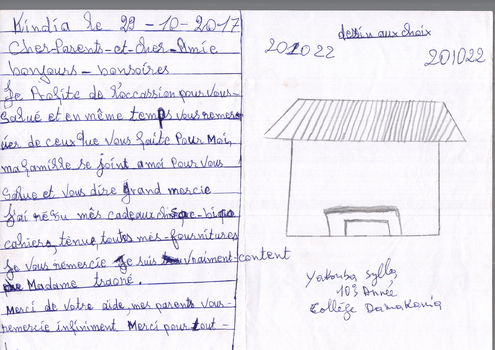 Kindia le 29-10-2017
Cher-Parents-et-cher-Amie
bonjours-bonsoires
Je Profite de l'occassion pour vous-
Salué et en même temps vous remer
ier de ceux que vous faite Pour Moi,
ma famille se joint a moi Pour vous
Salué et vous dire grand mercie
J'ai réçu mês cadeaux
cahiers, ténue, toutes mes-fournitures
Je vous remercie Je suis vraiment-content
Madame traoré.
Merci de votre aide, mes parents vous-
remercie infiniment Merci pour tout-
dessin aux choix
201022
201022
Yakouba Sylla
10è Année
Collège Damakania